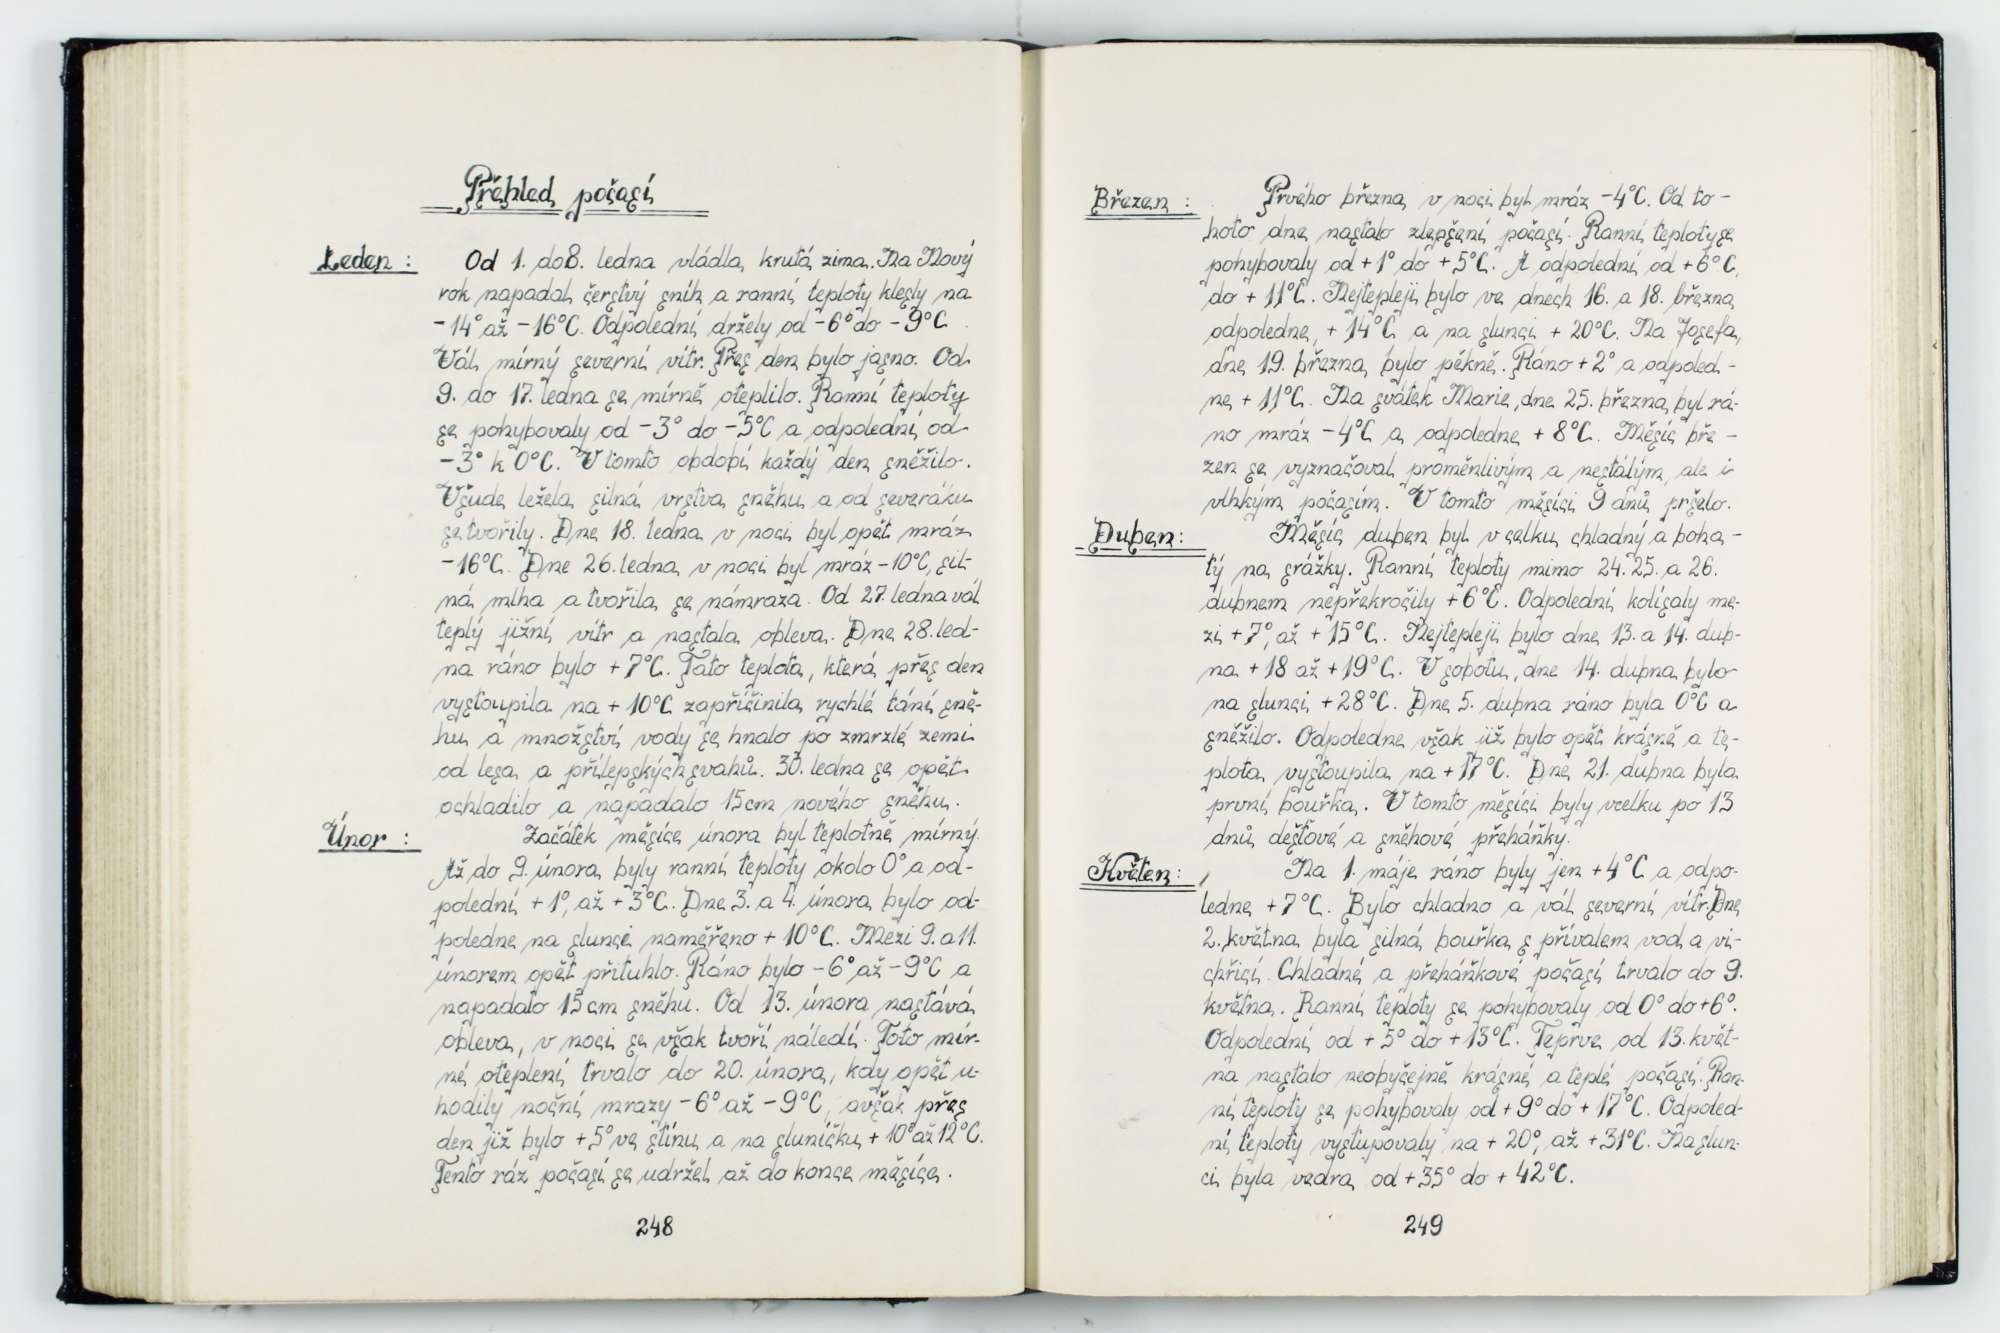 Přehled počasí
Leden : Od 1. do 8. ledna vládla krutá zima. Na Nový
rok napadal čerstvý sníh a ranní teploty klesly na
-14° až -16°C. Odpolední držely od -6° do -9°C.
Vál mírný severní vítr. Přes den bylo jasno. Od
9. do 17. ledna se mírně oteplilo. Ranní teploty
se pohybovaly od -3° do -5°C a odpolední od
-3° k 0°C. V tomto období každý den sněžilo.
Všude ležela silná vrstva sněhu a od severáku
se tvořily. Dne 18. ledna v noci byl opět mráz
-16°C. Dne 26. ledna v noci byl mráz -10°C, sil-
ná mlha a tvořila se námraza. Od 27. ledna vál
teplý jižní vítr a nastala obleva. Dne 28. led-
na ráno bylo +7°C. Tato teplota, která přes den
vystoupila na +10°C zapříčinila rychlé tání sně-
hu a množství vody se hnalo po zmrzlé zemi
od lesa a přílepských svahů. 30. ledna se opět
ochladilo a napadalo 15cm nového sněhu.
Únor : Začátek měsíce února byl teplotně mírný.
Až do 9. února byly ranní teploty okolo 0° a od-
polední +1°, až +3°C. Dne 3. a 4. února bylo od-
poledne na slunci naměřeno +10°C. Mezi 9. a 11.
únorem opět přituhlo. Ráno bylo -6° až -9°C a
napadalo 15 cm sněhu. Od 13. února nastává
obleva, v noci se však tvoří náledí. Toto mír-
né oteplení trvalo do 20. února, kdy opět u-
hodily noční mrazy -6° až -9°C, avšak přes
den již bylo +5° ve stínu a na sluníčku +10° až 12°C.
Tento ráz počasí se udržel až do konce měsíce.
248
Březen : Prvého března v noci byl mráz -4°C. Od to-
hoto dne nastalo zlepšení počasí. Ranní teploty se
pohybovaly od +1° do +5°C. A odpolední od +6°C
do +11°C. Nejtepleji bylo ve dnech 16. a 18. března
odpoledne, +14°C a na slunci +20°C. Na Josefa,
dne 19. března, bylo pěkně. Ráno +2° a odpoled-
ne +11°C. Na svátek Marie, dne 25. března, byl rá-
no mráz -4°C a odpoledne +8°C. Měsíc bře-
zen se vyznačoval proměnlivým a nestálým, ale i
vlhkým počasím. V tomto měsíci 9 dnů pršelo.
Duben : Měsíc duben byl v celku chladný a boha-
tý na srážky. Ranní teploty mimo 24. 25. a 26.
dubnem nepřekročily +6°C. Odpolední kolísaly me-
zi +7°, až +15°C. Nejtepleji bylo dne 13. a 14. dub-
na +18 až +19°C. V sobotu, dne 14. dubna bylo
na slunci +28°C. Dne 5. dubna ráno byla 0°C a
sněžilo. Odpoledne však již bylo opět krásně a te-
plota vystoupila na +17°C. Dne 21. dubna byla
první bouřka. V tomto měsíci byly vcelku po 13
dnů dešťové a sněhové přeháňky.
Květen : Na 1. máje ráno byly jen +4°C a odpo-
ledne +7°C. Bylo chladno a vál severní vítr. Dne
2. května byla silná bouřka s přívalem vod a vi-
chřicí. Chladné a přeháňkové počasí trvalo do 9.
května. Ranní teploty se pohybovaly od 0° do +6°.
Odpolední od +5° do +13°C. Teprve od 13. květ-
na nastalo neobyčejně krásné a teplé počasí. Ran-
ní teploty se pohybovaly od +9° do +17°C. Odpoled-
ní teploty vystupovaly na +20°, až +31°C. Na slun-
ci byla vedra od +35° do +42°C.
249